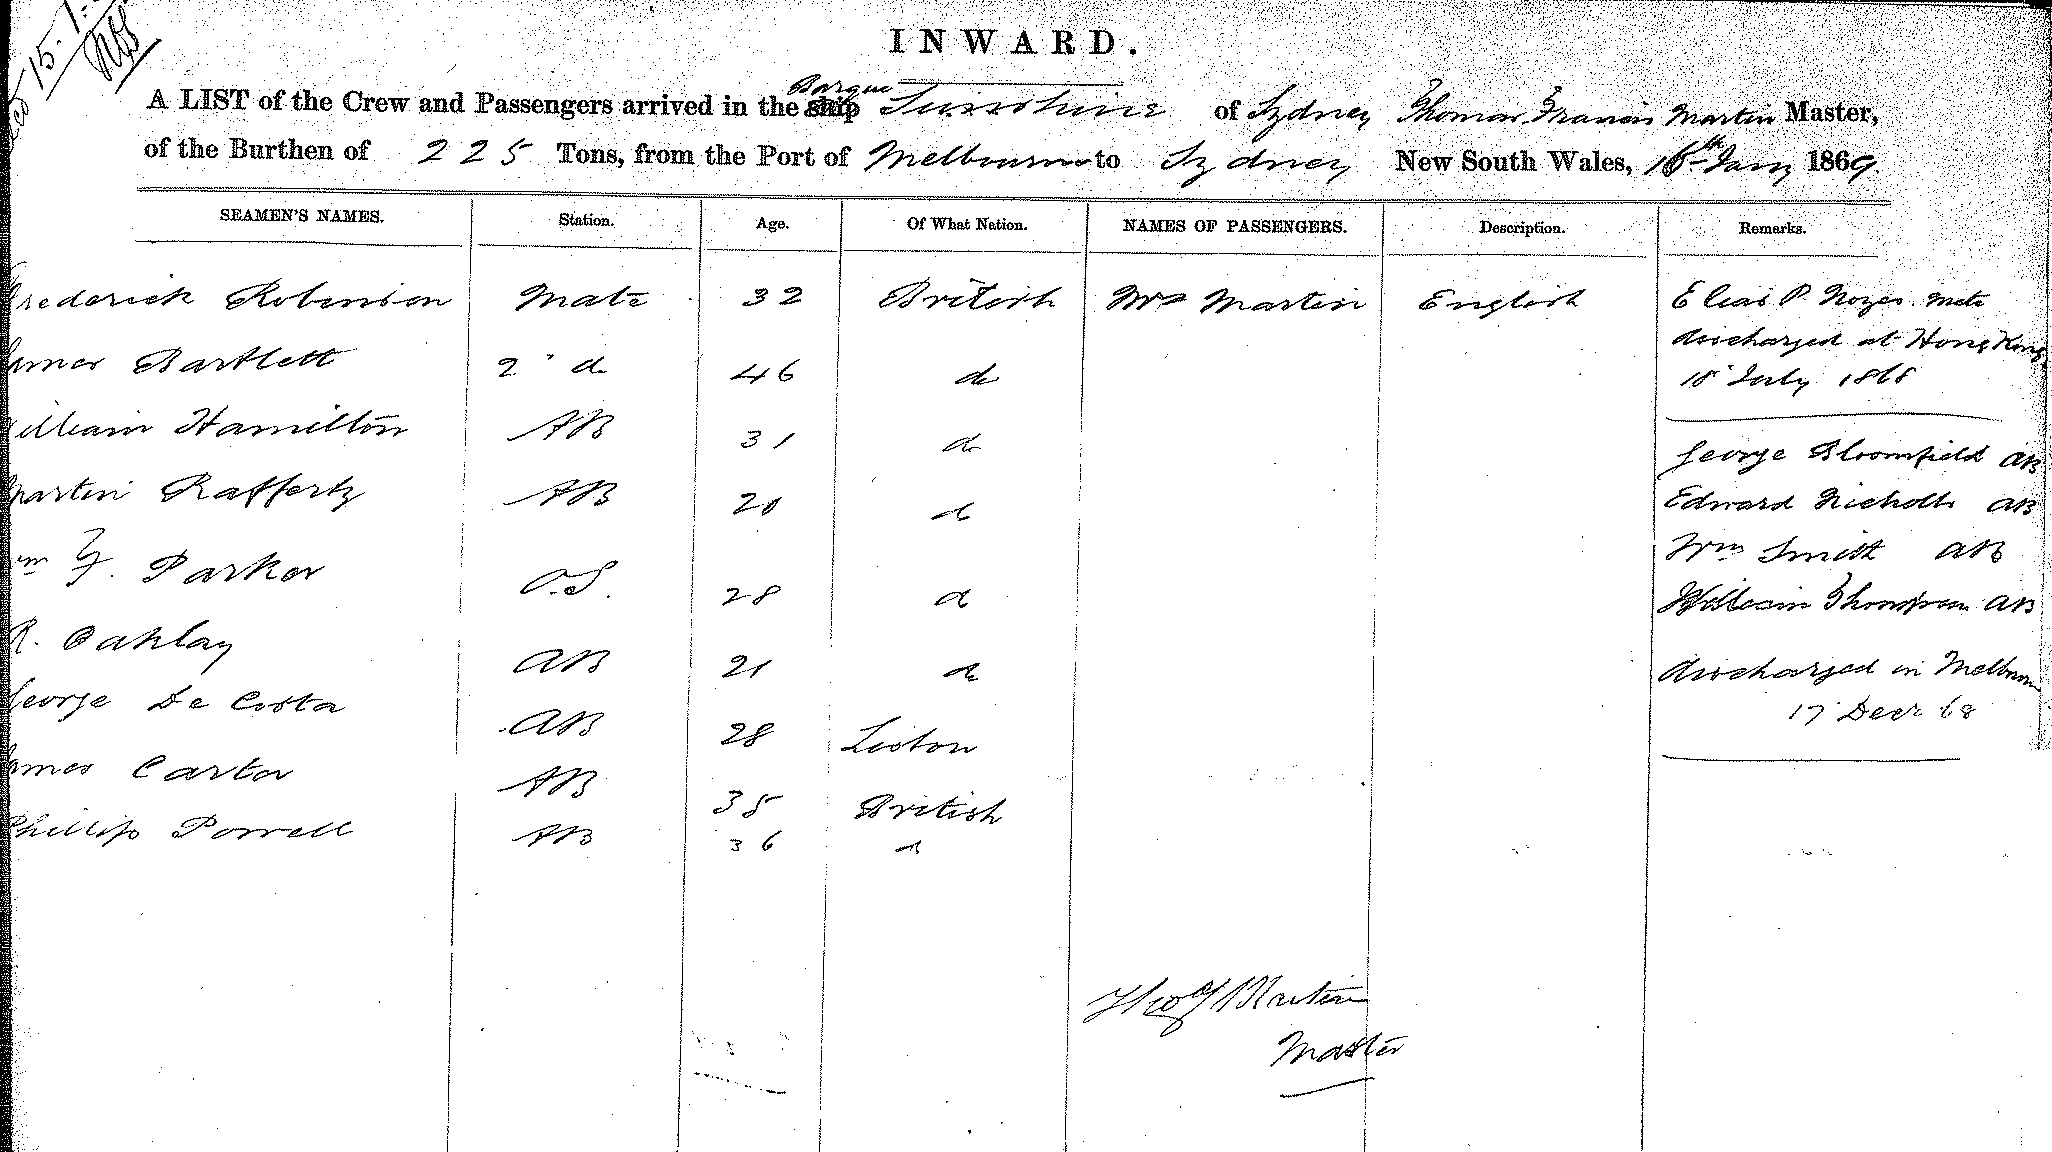 15.1.
INWARD.
Barque
A LIST of the Crew and Passengers arrived in the ship Sunshine of Sydney Thomas Francis Martin Master,
of the Burthen of 225 Tons, from the Port of Melbourne to Sydney New South Wales, 15th Jany 1869.
SEAMEN'S NAMES. Station. Age. Of What Nation. NAMES OF PASSENGERS. Description. Remarks.
Frederick Robinson Mate 32 British Mrs Martin English Elias P. Noyes. Mate
discharged at Hong Kong
James Bartlett 2 do 46 do 18 July 1868
William Hamilton AB 31 do
George Bloomfield AB
Martin Rafferty AB 20 do Edward Nicholls AB
Wm Smith AB
Wm F. Parker O.S. 28 do William Thompson AB
R. Oakley AB 21 do discharged in Melbourne
George De Costa AB 28 Lisbon 17 Decr 68
James Carter AB 35 British
Phillip Powell AB 36 do
Thos F Martin
Master